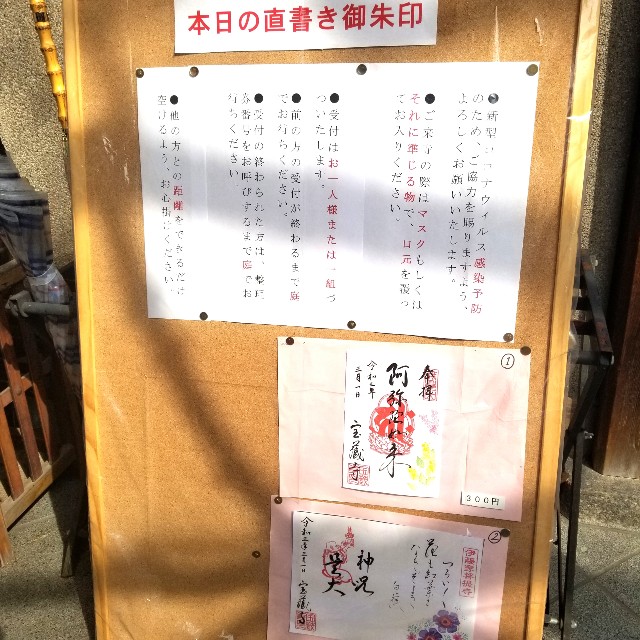 本日の直書き御朱印
●新型コロナウィルス感染予防
のため、ご協力を賜りますよう、
よろしくお願いいたします。
●ご来寺の際はマスクもしくは
それに準じる物で、口元を覆っ
てお入りください。
●受付はお一人様または一組づ
ついたします。
●前の方の受付が終わるまで庭
でお待ちください。
●受付の終わられた方は、整理
券番号をお呼びするまで庭でお
待ちください。
●他の方との距離をできるだけ
空けるよう、お心掛けください。
①
奉拝
阿弥陀如来
令和二年
三月一日
宝蔵寺
300円
②
神咒
寅天
令和二年三月一日
宝蔵寺